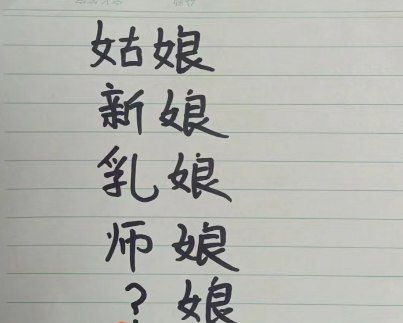 姑娘
新娘
乳娘
师娘
?娘